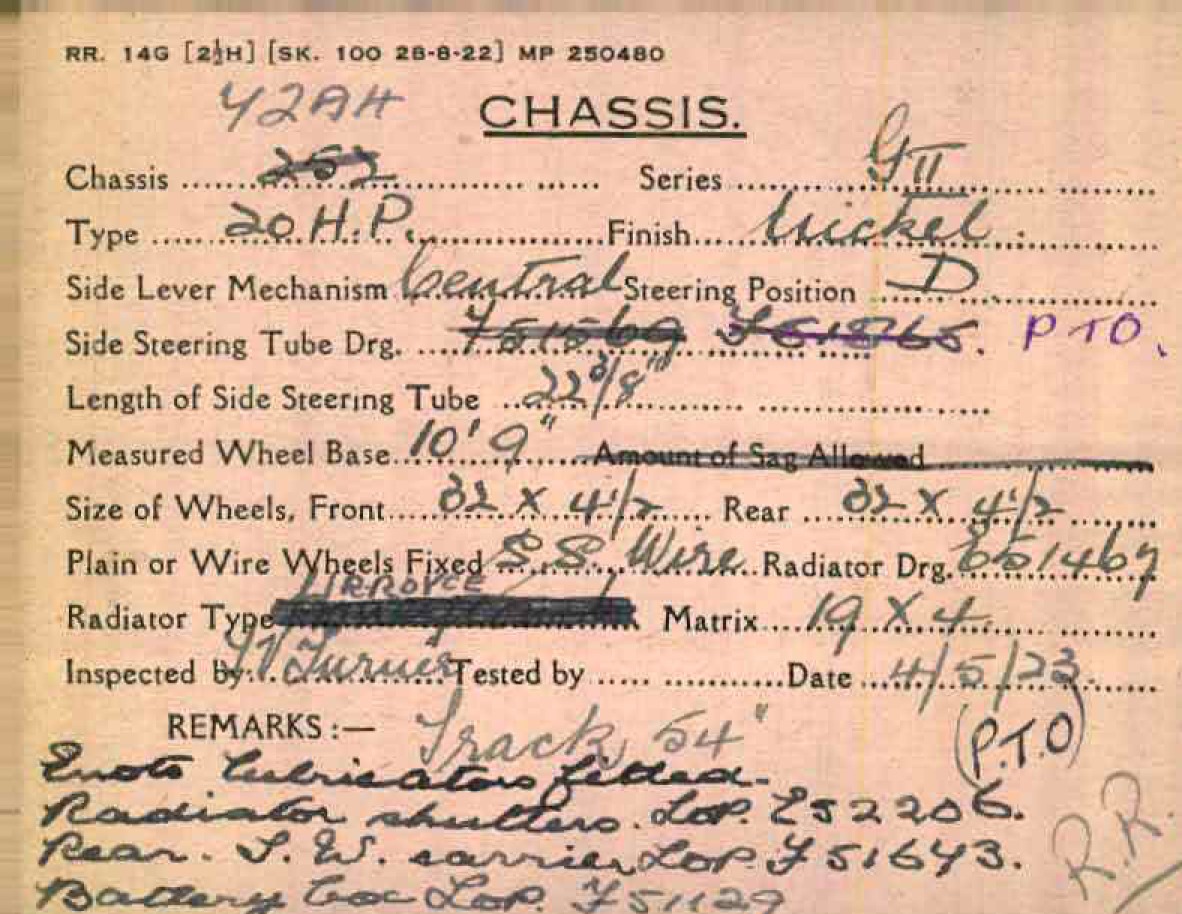 RR. 14G [2½H] [SK. 100 28-8-22] MP 250480
42AH CHASSIS.
Chassis 252 Series G II
Type 20 H.P. Finish Nickel.
Side Lever Mechanism Central Steering Position D
Side Steering Tube Drg. F51569 F51565. P T O.
Length of Side Steering Tube 22 3/8"
Measured Wheel Base 10' 9" Amount of Sag Allowed
Size of Wheels, Front 32 X 4 1/2 Rear 32 X 4 1/2
Plain or Wire Wheels Fixed S.S. Wire Radiator Drg. E51467
Radiator Type Matrix 19 X 4
Inspected by Turner Tested by Date 4/5/23
REMARKS :— Track 54" (P.T.O)
Enots lubricators fitted.
Radiator shutters. Lop. E52206.
Rear. S. W. carrier Lop. F51643.
Battery box Lop. F51129
R.R.